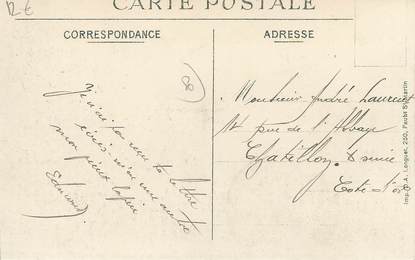 12 €
CARTE POSTALE
CORRESPONDANCE
ADRESSE
88
J'ai ton reçu ta lettre
écris m'en une autre
mon vieux lapin
Edouard
Monsieur André Laurent
11 rue de l'Abbaye
Chatillon s seine
Cote d'or
Imp. Ph. A. Longuet, 250, Faubg St-Martin